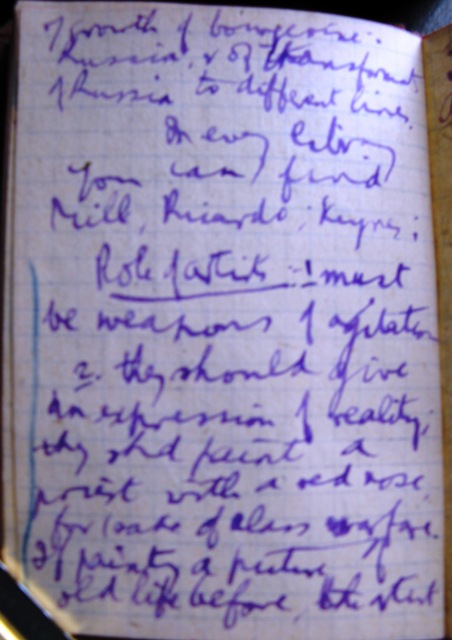 of growth of bourgeoisie:
Russia, & of transformat.
of Russia to different lines.
In every library
You can find
Mill, Ricardo, Keynes;
Role of artists: 1 must
be weapons of agitation
2. they should give
an expression of reality;
they shd paint a
priest with a red nose,
for sake of class warfare.
If painting a picture of
old life before, the artist